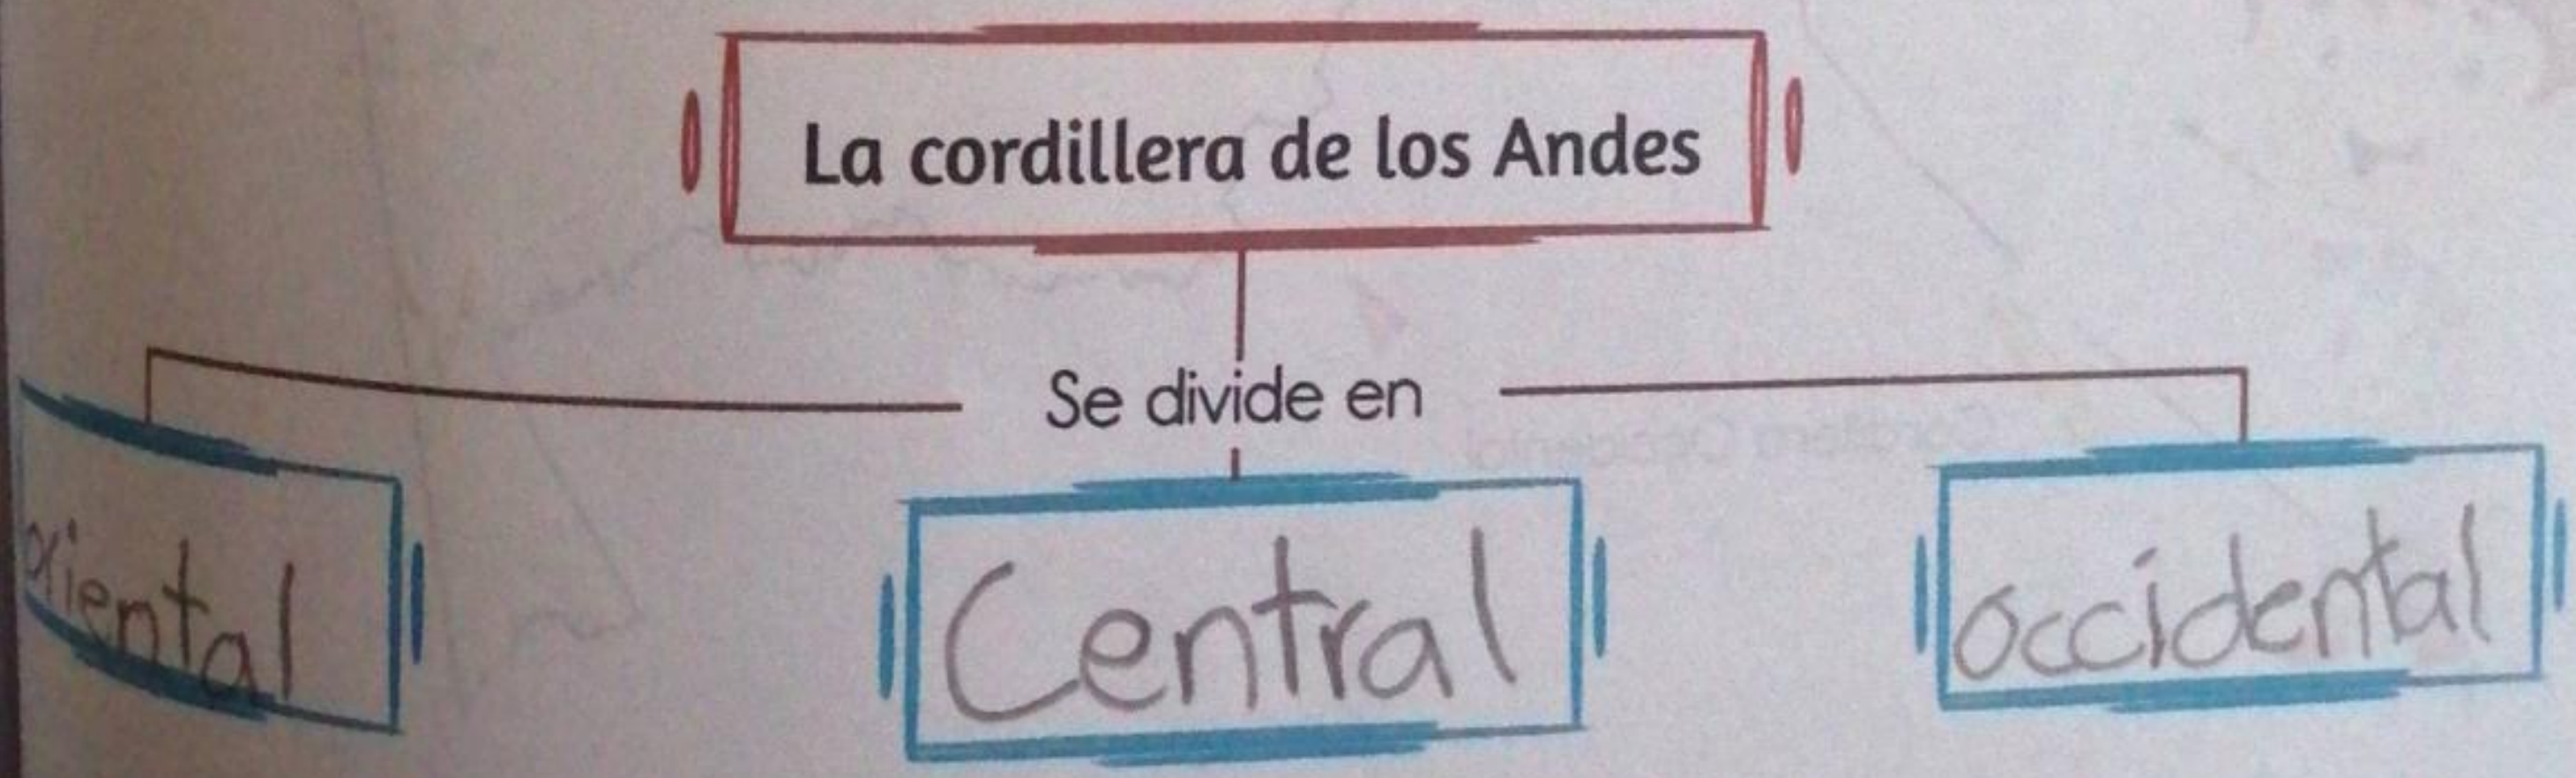 La cordillera de los Andes
Se divide en
oriental
Central
occidental